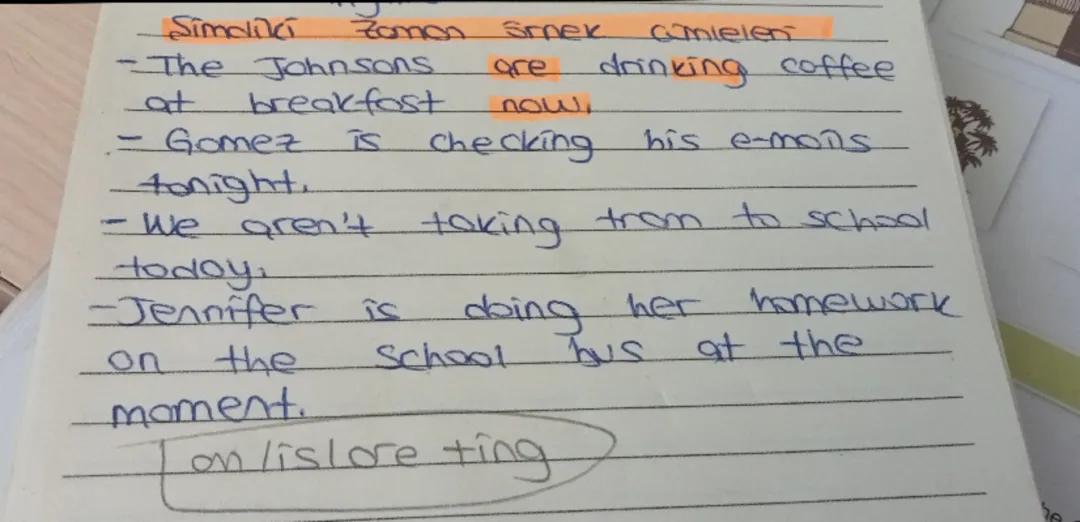 Şimdiki zaman örnek cümleleri
- The Johnsons are drinking coffee
at breakfast now.
- Gomez is checking his e-mails
tonight.
- We aren't taking tram to school
today.
- Jennifer is doing her homework
on the school bus at the
moment.
am/is/are +ing